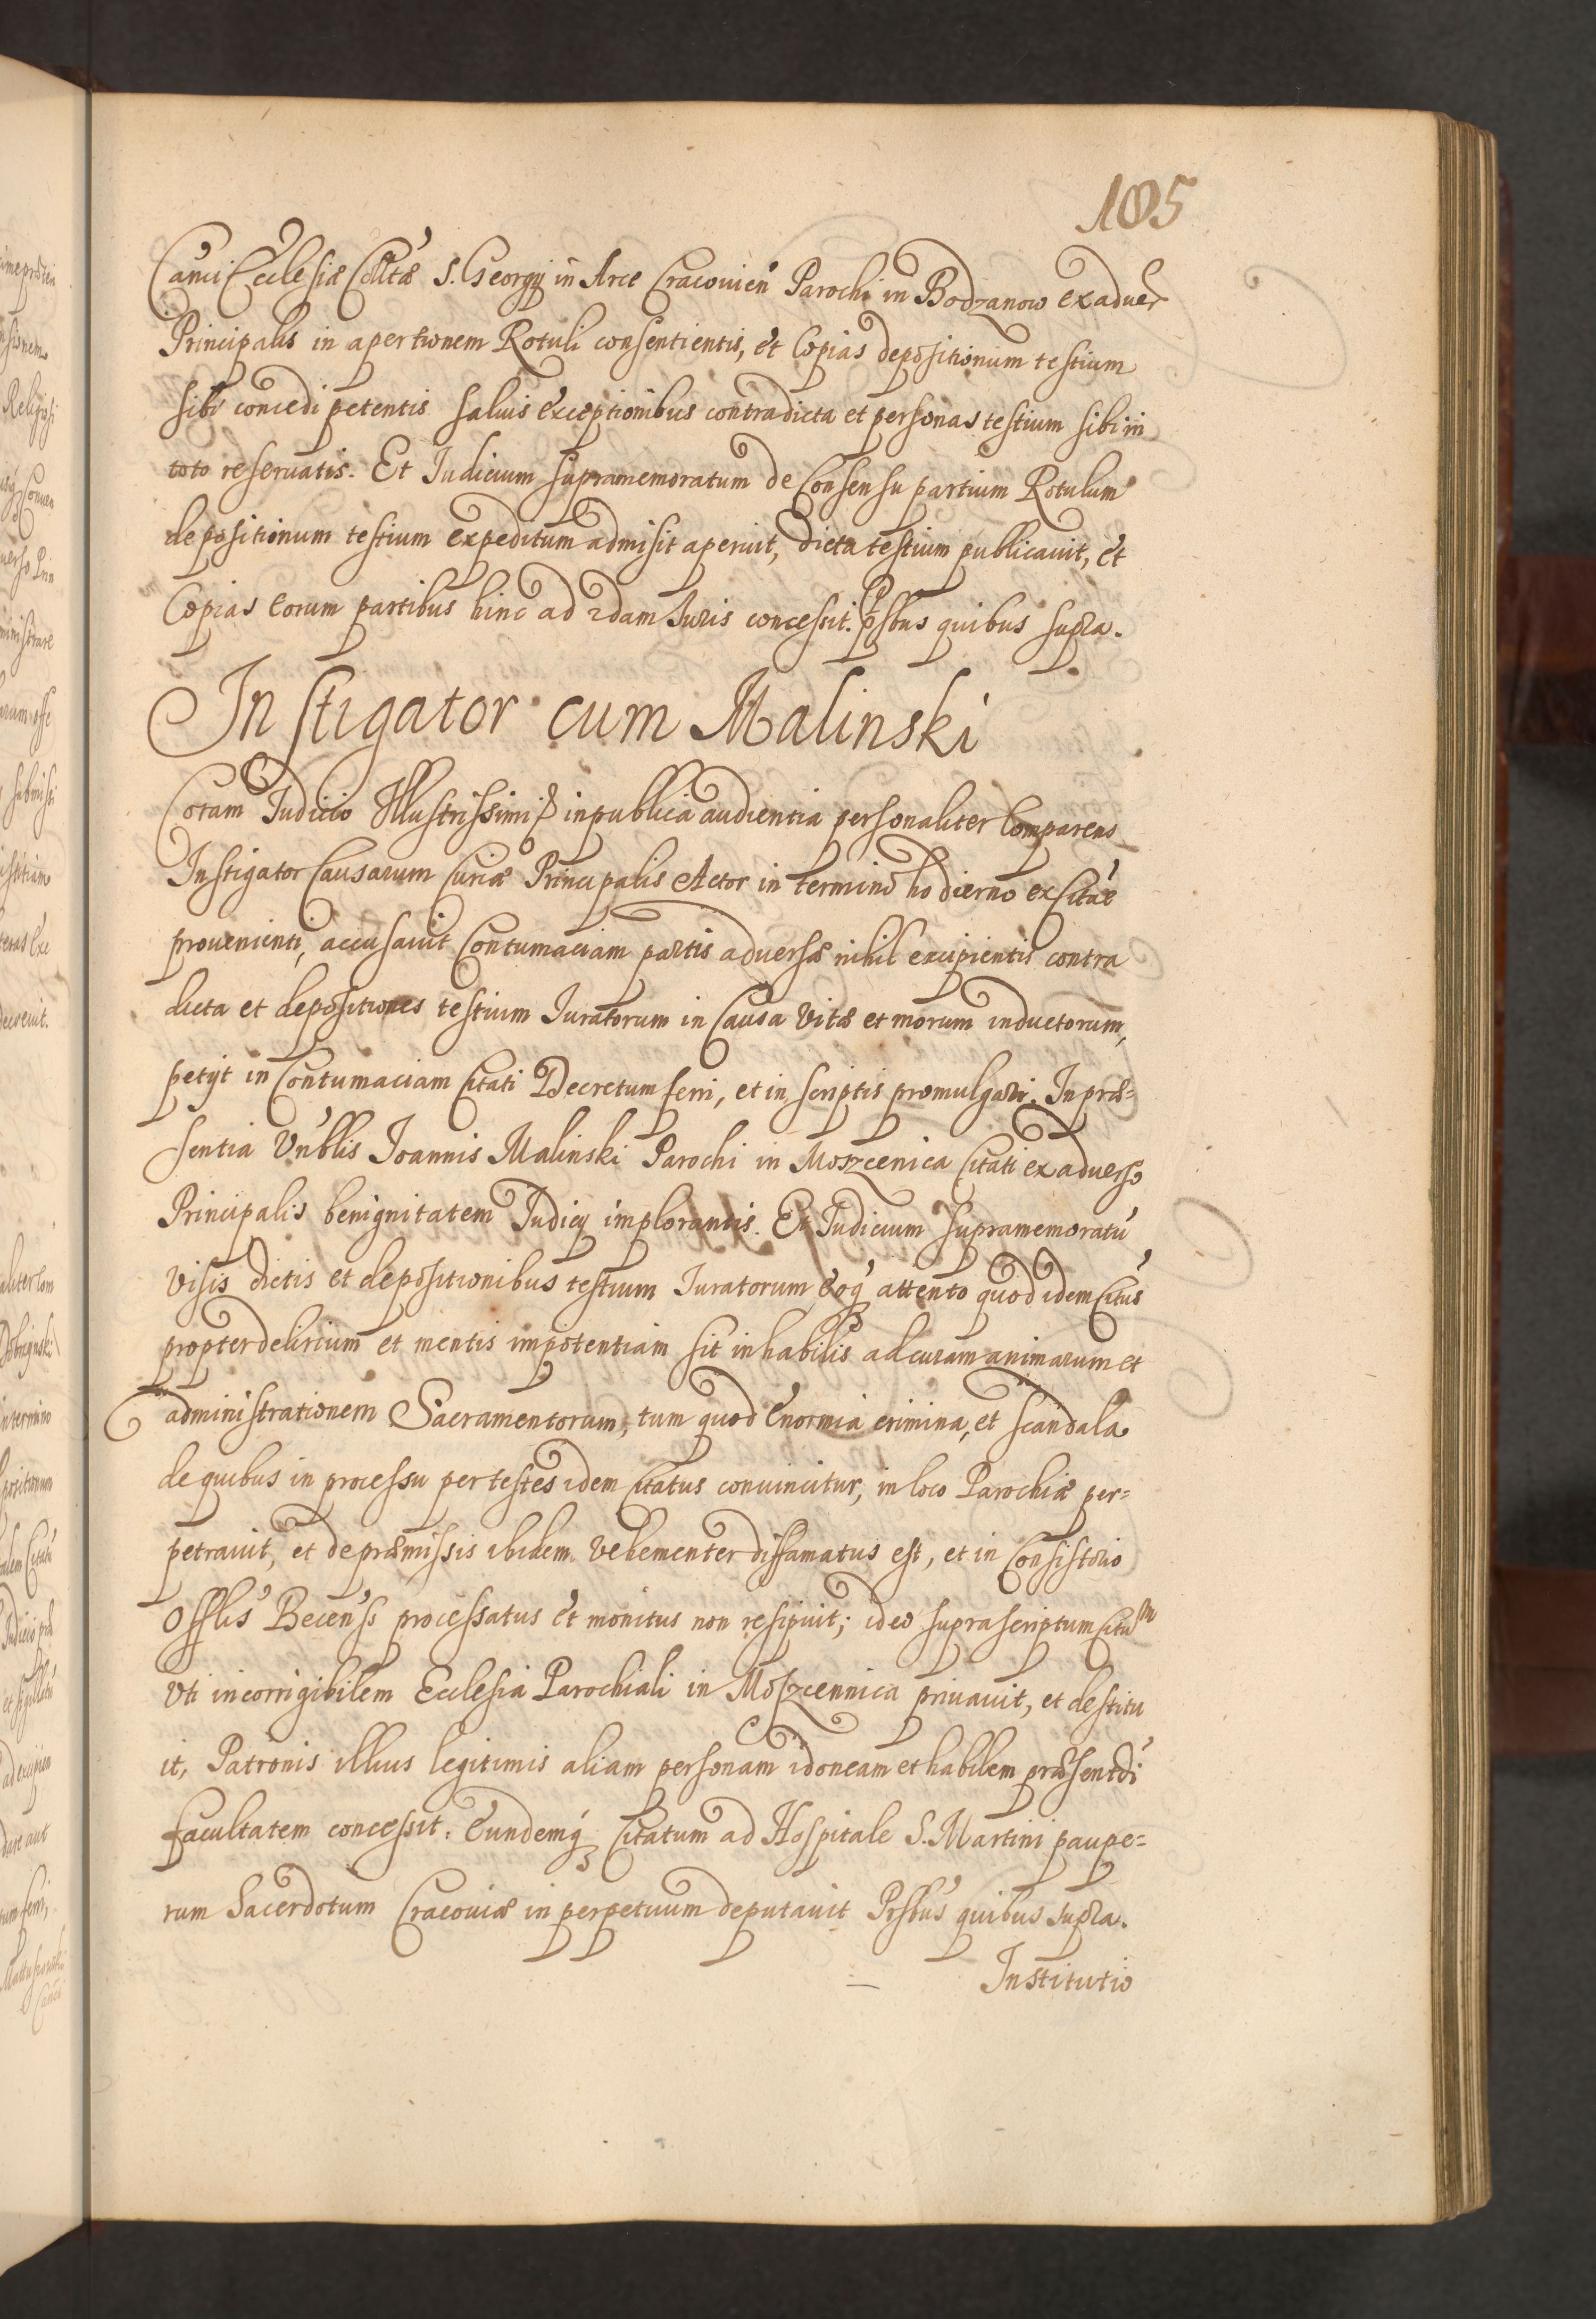 105
Canci Ecclesiæ Colltæ S. Georgij in Arce Cracovien Parochi in Bodzanow ex adver
Principalis in apertionem Rotuli consentientis, et Copias depositionum testium
sibi concedi petentis salvis exceptionibus contra dicta et personas testium sibi in
toto reservatis. Et Judicium supramemoratum de Consensu partium Rotulum
depositionum testium expeditum admisit aperuit, dicta testium publicavit, et
Copias eorum partibus hinc ad 2dam Juris concessit. Psbus quibus supra.
Instigator cum Malinski
Coram Judicio Illustrissimi in publica audientia personaliter Comparens
Instigator Causarum Curiæ Principalis Actor in termino hodierno ex Citāe
provenienti, accusavit Contumaciam partis adversæ nihil excipientis contra
dicta et depositiones testium Juratorum in Causa Vitæ et morum inductorum,
petijt in Contumaciam Citati Decretum ferri, et in scriptis promulgari. In præ=
sentia Vnblis Joannis Malinski Parochi in Moszcenica Citati ex adverso
Principalis benignitatem Judicij implorantis. Et Judicium supramemoratū
visis dictis et depositionibus testium Juratorum eoq attento quod idem Citus
propter delirium et mentis impotentiam sit inhabilis ad curam animarum et
administrationem Sacramentorum, tum quod enormia crimina, et scandala
de quibus in processu per testes idem Citatus convincitur, in loco Parochiæ per=
petravit, et de præmissis ibidem vehementer diffamatus est, et in Consistorio
Offlis Becenss processatus et monitus non resipuit; ideo suprascriptum Citum
Vti incorrigibilem Ecclesia Parochiali in Moszcennica privavit, et destitu
it, Patronis illius legitimis aliam personam idoneam et habilem præsentdi
facultatem concessit. Eundemq Citatum ad Hospitale S. Martini paupe=
rum Sacerdotum Cracoviæ in perpetuum deputavit Prsbus quibus supra.
Institutio